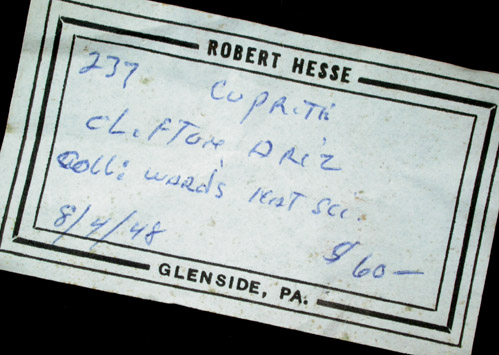 ROBERT HESSE
237 CUPRITE
CLIFTON, ARIZ
Coll: WARD'S NAT SCI.
8/4/48 $60—
GLENSIDE, PA.